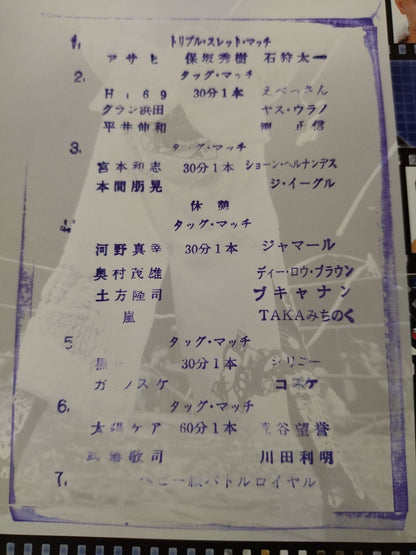 1. トリプル・スレット・マッチ
アサヒ 保坂秀樹 石狩太一
2. タッグ・マッチ
Hi69 30分1本 えべっさん
グラン浜田 ヤス・ウラノ
平井伸和 正信
3. タッグ・マッチ
宮本和志 30分1本 ショーン・ヘルナンデス
本間朋晃 ジ・イーグル
休憩
タッグ・マッチ
河野真幸 30分1本 ジャマール
奥村茂雄 ディー・ロウ・ブラウン
土方隆司 ブキャナン
嵐 TAKAみちのく
5 タッグ・マッチ
30分1本
ガ ノスケ コスケ
6. タッグ・マッチ
太陽ケア 60分1本 谷望誉
武藤敬司 川田利明
7. ヘビー級バトルロイヤル